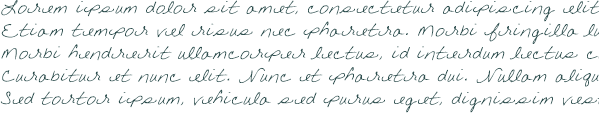 Lorem ipsum dolor sit amet, consectetur adipiscing elit
Etiam tempor vel risus nec pharetra. Morbi fringilla lu
Morbi hendrerit ullamcorper lectus, id interdum lectus c
Curabitur et nunc elit. Nunc et pharetra dui. Nullam aliqu
Sed tortor ipsum, vehicula sed purus eget, dignissim ves